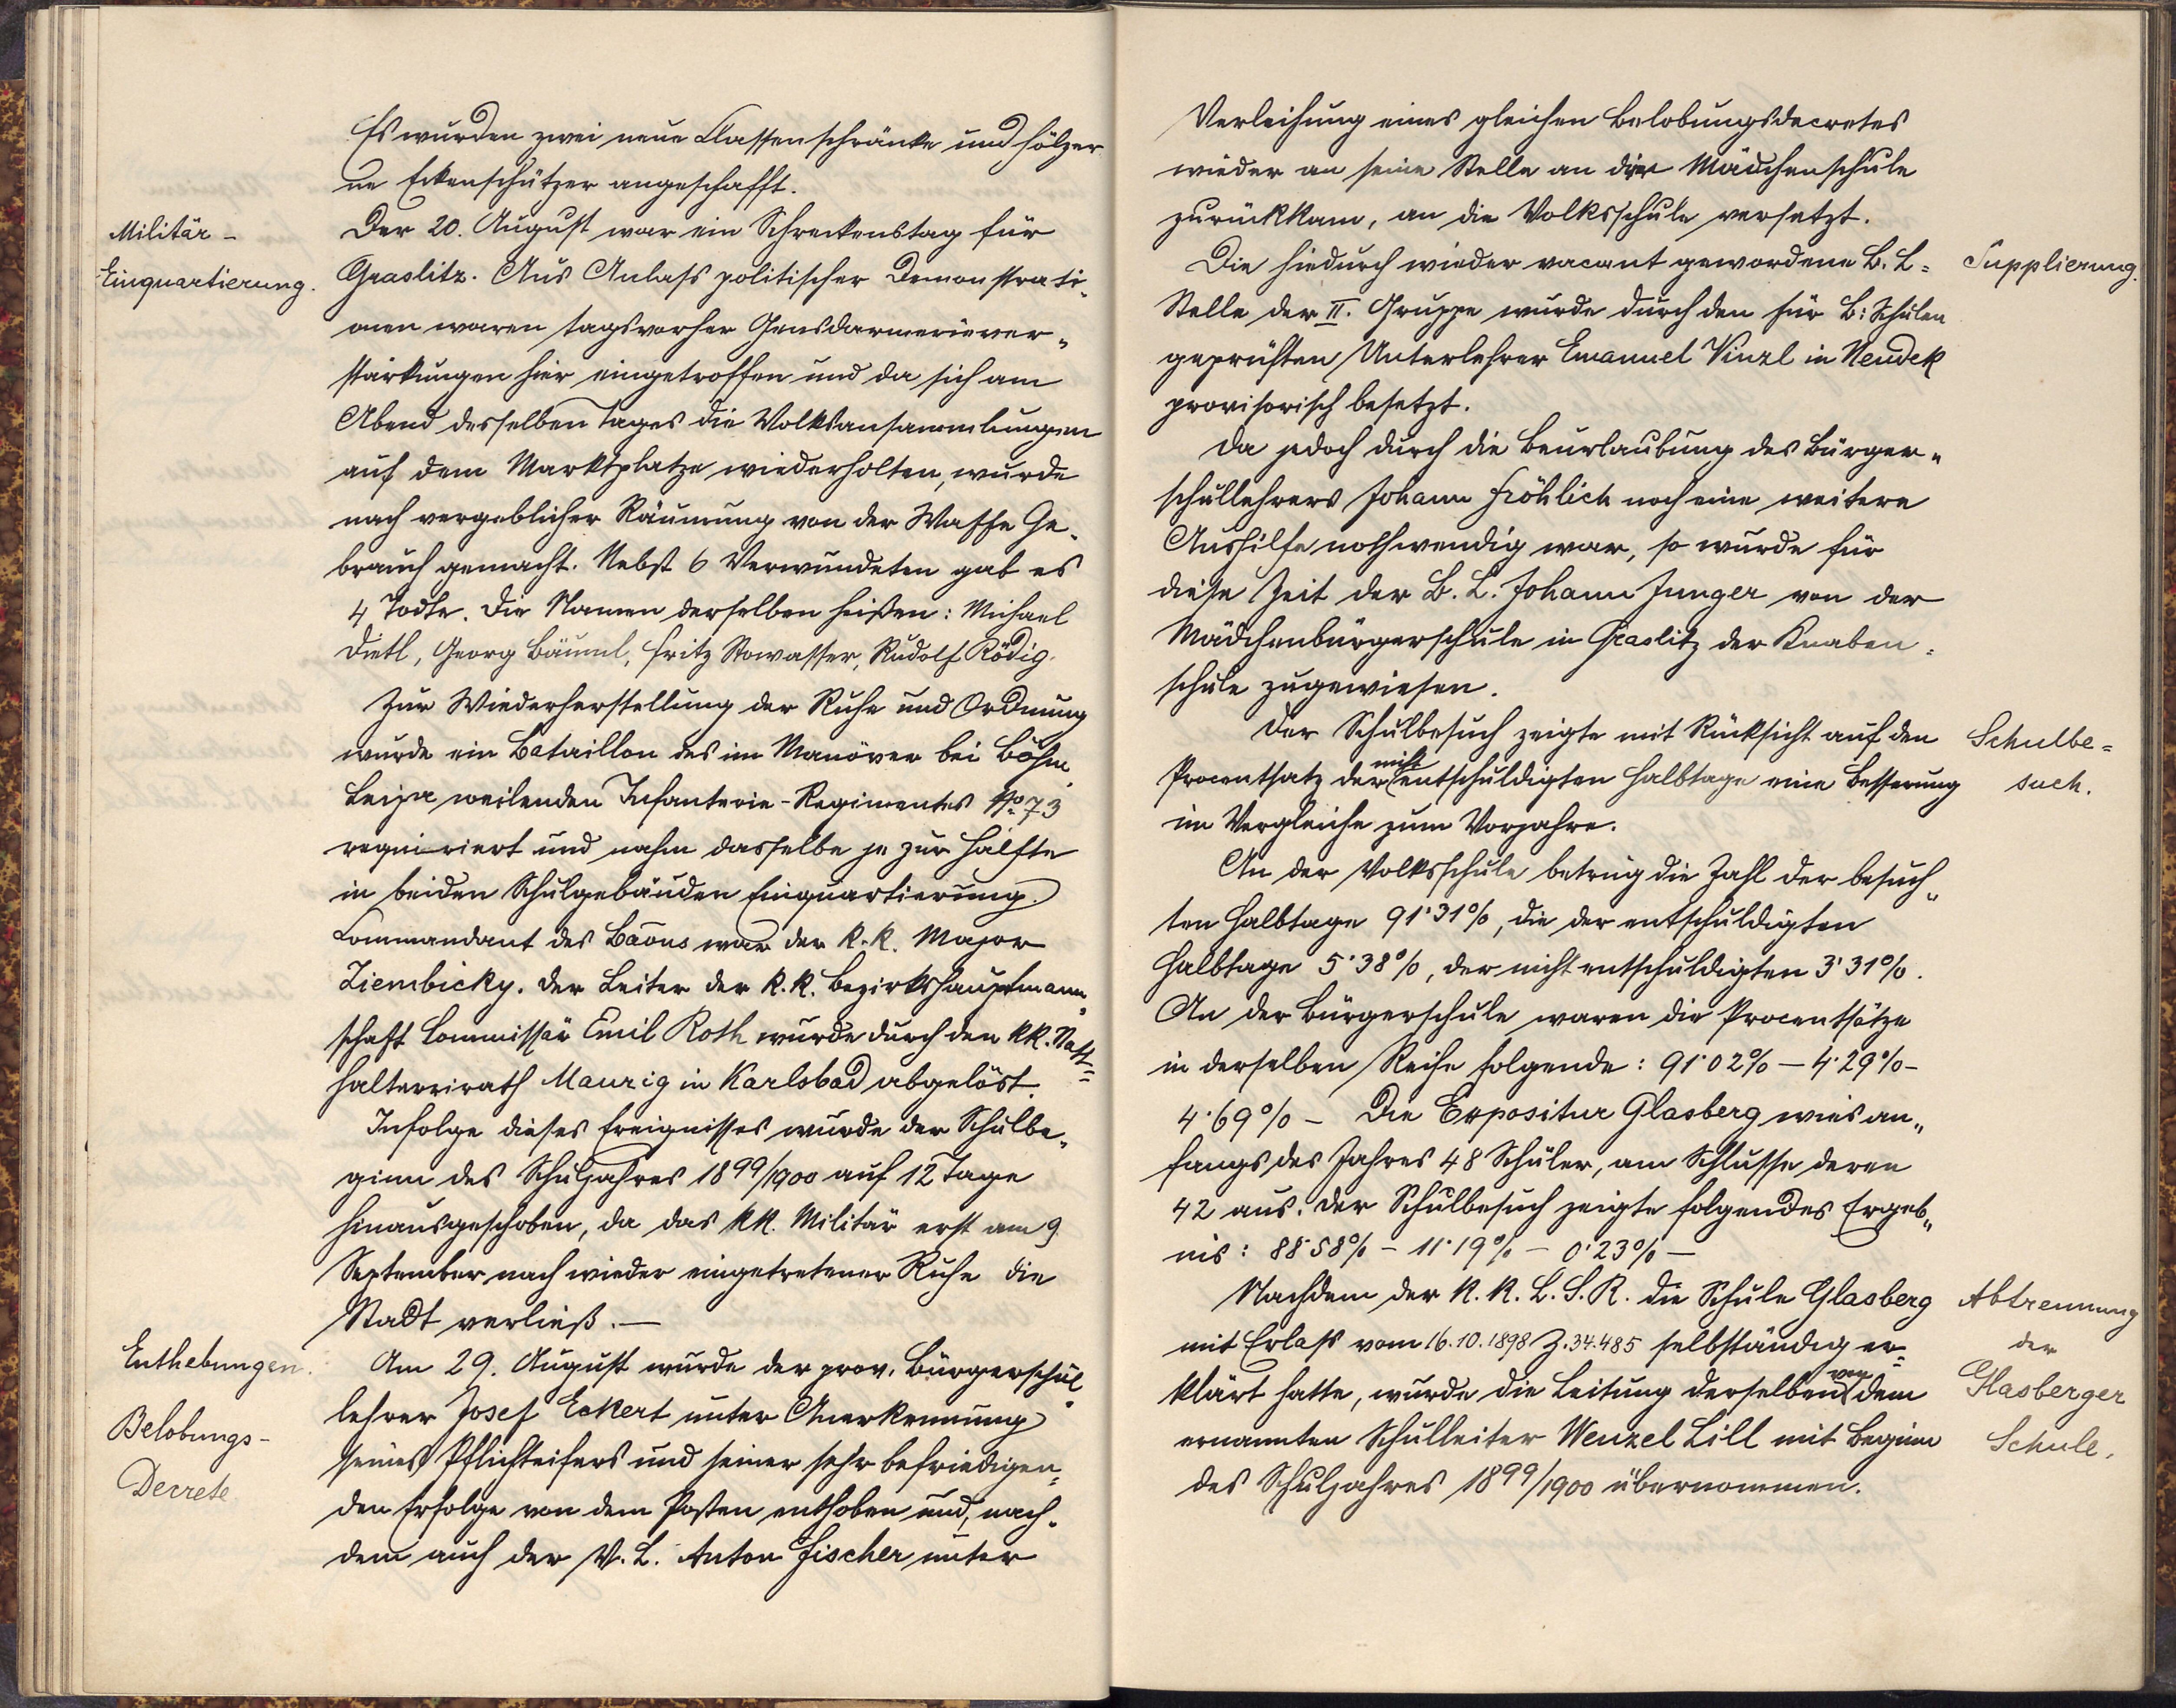 Es wurden zwei neue Classenschränke und hölzer
ne Eckenschützer angeschafft.
Militär-
Einquartierung.
Der 20. August war ein Schreckenstag für
Graslitz. Aus Anlass politischer Demonstrati„
onen waren tagsvorher Gensdarmeriever„
stärkungen hier eingetroffen und da sich am
Abend desselben Tages die Volksansammlungen
auf dem Marktplatze wiederholten, wurde
nach vergeblicher Räumung von der Waffe Ge„
brauch gemacht. Nebst 6 Verwundeten gab es
4 Todte. Die Namen derselben heißen: Michael
Dietl, Georg Bäuml, Fritz Stowasser, Rudolf Rödig.
Zur Wiederherstellung der Ruhe und Ordnung
wurde ein Bataillon des im Manöver bei Böhm.
Leipa weilenden Infanterie-Regimentes No 73
requiriert und nahm dasselbe je zur Hälfte
in beiden Schulgebäuden Einquartierung.
Commandant des Baons war der k.k. Major
Ziembicky. Der Leiter der k.k. Bezirkshauptmann„
schaft Commissär Emil Roth wurde durch den kk. Statt=
haltereirath Maurig in Karlsbad abgelöst.
Infolge dieses Ereignisses wurde der Schulbe„
ginn des Schuljahres 1899/1900 auf 12 Tage
hinausgeschoben, da das kk. Militär erst am 9.
September nach wieder eingetretener Ruhe die
Stadt verließ.—
Enthebungen.
Belobungs-
Decrete
Am 29. August wurde der prov. Bürgerschul„
lehrer Josef Eckert unter Anerkennung
seines Pflichteifers und seiner sehr befriedigen„
den Erfolge von dem Posten enthoben und, nach„
dem auch der V. L. Anton Fischer unter
Verleihung eines gleichen Belobungsdecretes
wieder an seine Stelle an der Mädchenschule
zurückkam, an die Volksschule versetzt.
Supplierung.
Die hiedurch wieder vacant gewordene B. L=
Stelle der II. Gruppe wurde durch den für B: Schulen
geprüften Unterlehrer Emanuel Vinzl in Neudek
provisorisch besetzt.
Da jedoch durch die Beurlaubung des Bürger„
schullehrers Johann Fröhlich noch eine weitere
Aushilfe nothwendig war, so wurde für
diese Zeit der B. L. Johann Junger von der
Mädchenbürgerschule in Graslitz der Knaben=
schule zugewiesen.
Schulbe=
such.
Der Schulbesuch zeigte mit Rücksicht auf den
Procentsatz der nicht entschuldigten Halbtage eine Besserung
im Vergleiche zum Vorjahre.
An der Volksschule betrug die Zahl der besuch„
ten Halbtage 91·31%, die der entschuldigten
Halbtage 5·38%, der nicht entschuldigten 3·31%.
An der Bürgerschule waren die Procentsätze
in derselben Reihe folgende: 91·02% — 4·29% —
4·69% — Die Expositur Glasberg wies an„
fangs des Jahres 48 Schüler, am Schlusse deren
42 aus. Der Schulbesuch zeigte folgendes Ergeb„
nis: 88·58% — 11·19% — 0·23% —
Abtrennung
der
Glasberger
Schule.
Nachdem der k. k. L. S. R. die Schule Glasberg
mit Erlass vom 16.10.1898 Z. 34.485 selbständig er=
klärt hatte, wurde die Leitung derselben von dem
ernannten Schulleiter Wenzel Lill mit Beginn
des Schuljahres 1899/1900 übernommen.